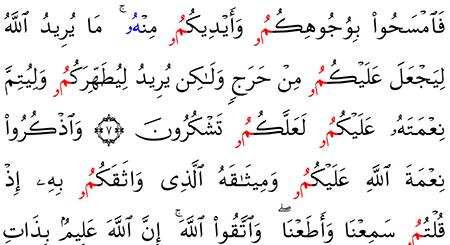 فَٱمْسَحُوا۟ بِوُجُوهِكُمُۥ وَأَيْدِيكُمُۥ مِنْهُۥ ۚ مَا يُرِيدُ ٱللَّهُ
لِيَجْعَلَ عَلَيْكُمُۥ مِنْ حَرَجٍۢ وَلَـٰكِن يُرِيدُ لِيُطَهِّرَكُمُۥ وَلِيُتِمَّ
نِعْمَتَهُۥ عَلَيْكُمُۥ لَعَلَّكُمُۥ تَشْكُرُونَ ﴿٧﴾ وَٱذْكُرُوا۟
نِعْمَةَ ٱللَّهِ عَلَيْكُمُۥ وَمِيثَـٰقَهُ ٱلَّذِى وَاثَقَكُمُۥ بِهِۦٓ إِذْ
قُلْتُمُۥ سَمِعْنَا وَأَطَعْنَا ۖ وَٱتَّقُوا۟ ٱللَّهَ ۚ إِنَّ ٱللَّهَ عَلِيمٌۢ بِذَاتِ